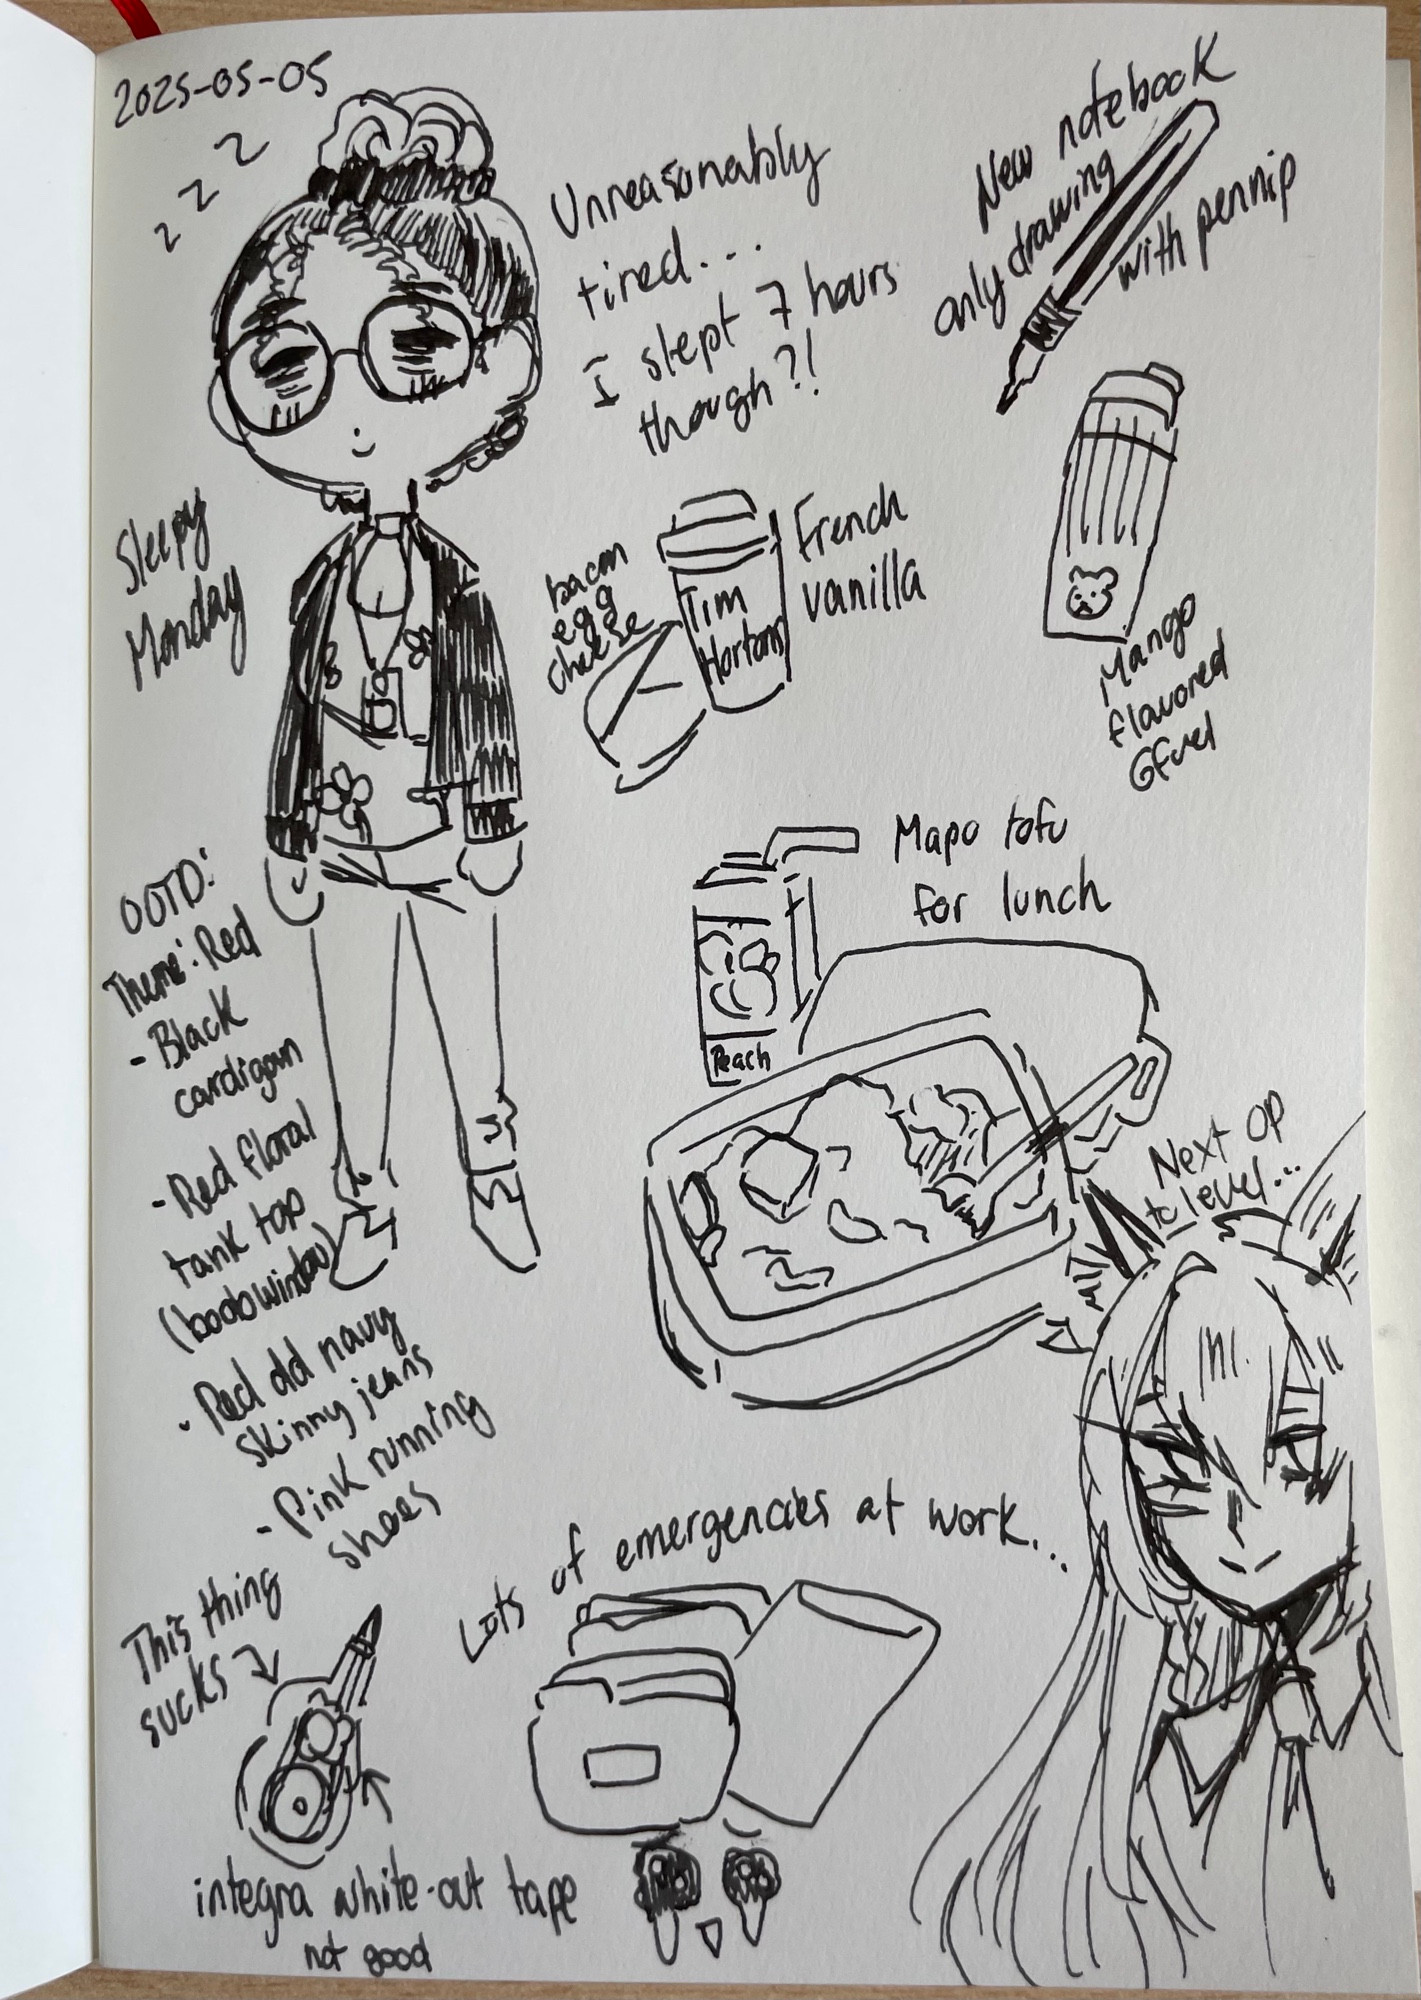 2025-05-05
z z z
Unreasonably
tired...
I slept 7 hours
though?!
New notebook
only drawing
with pennip
Sleepy
Monday
bacon
egg
cheese
Tim
Hortons
French
vanilla
Mango
flavored
Gfuel
Mapo tofu
for lunch
Peach
OOTD:
Theme: Red
- Black
cardigan
- Red floral
tank top
(boob window)
- Red old navy
skinny jeans
- Pink running
shoes
Next op
to level...
Lots of emergencies at work...
This thing
sucks
integra white-out tape
not good